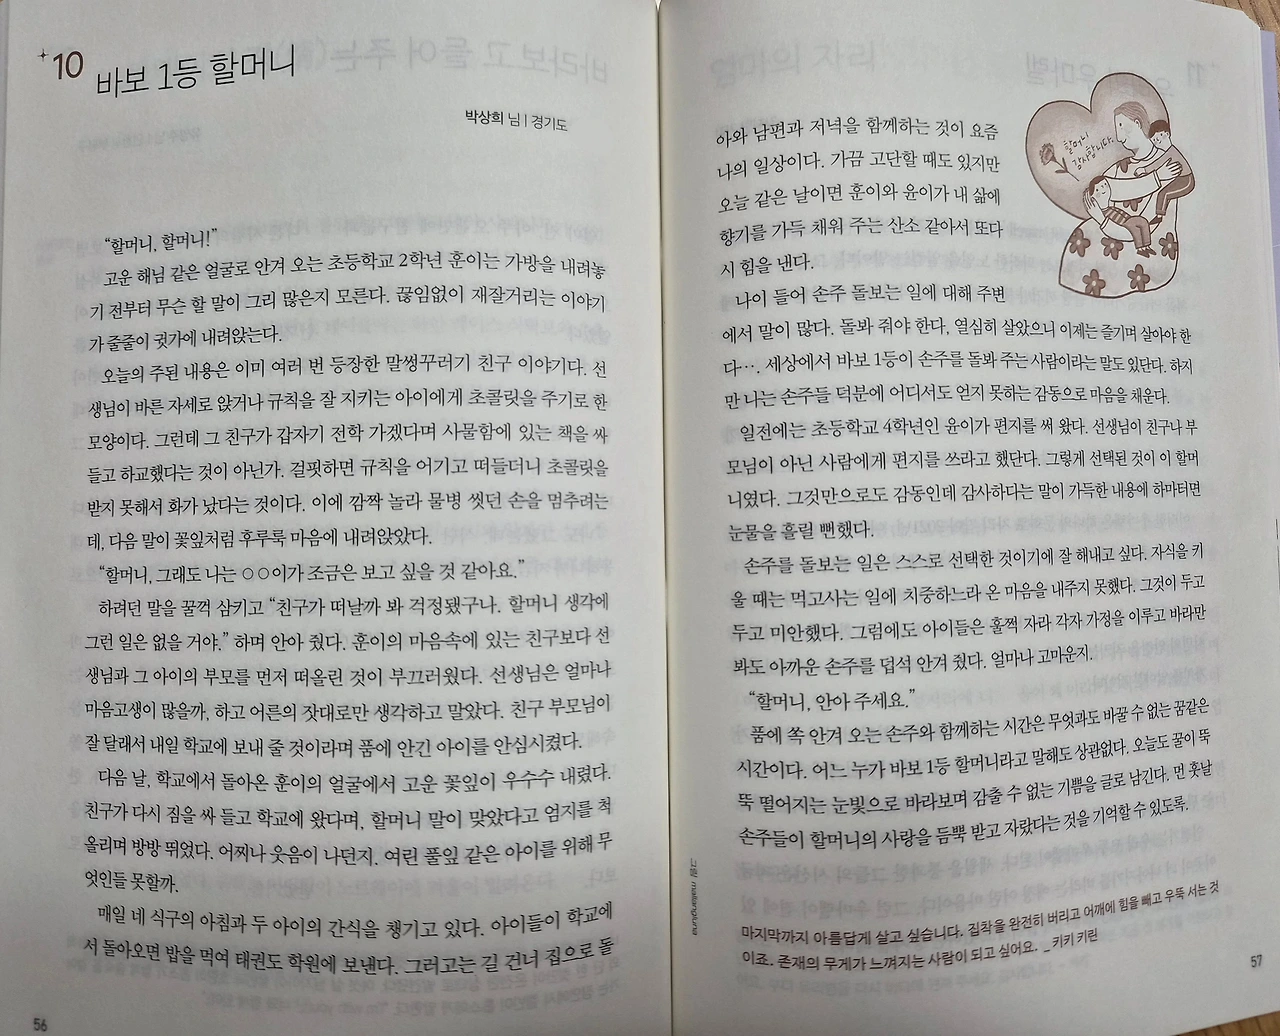 10 바보 1등 할머니
박상희 님 | 경기도
“할머니, 할머니!”
고운 해님 같은 얼굴로 안겨 오는 초등학교 2학년 훈이는 가방을 내려놓
기 전부터 무슨 할 말이 그리 많은지 모른다. 끊임없이 재잘거리는 이야기
가 줄줄이 귓가에 내려앉는다.
오늘의 주된 내용은 이미 여러 번 등장한 말썽꾸러기 친구 이야기다. 선
생님이 바른 자세로 앉거나 규칙을 잘 지키는 아이에게 초콜릿을 주기로 한
모양이다. 그런데 그 친구가 갑자기 전학 가겠다며 사물함에 있는 책을 싸
들고 하교했다는 것이 아닌가. 걸핏하면 규칙을 어기고 떠들더니 초콜릿을
받지 못해서 화가 났다는 것이다. 이에 깜짝 놀라 물병 씻던 손을 멈추려는
데, 다음 말이 꽃잎처럼 후루룩 마음에 내려앉았다.
“할머니, 그래도 나는 ○○이가 조금은 보고 싶을 것 같아요.”
하려던 말을 꿀꺽 삼키고 “친구가 떠날까 봐 걱정됐구나. 할머니 생각에
그런 일은 없을 거야.” 하며 안아 줬다. 훈이의 마음속에 있는 친구보다 선
생님과 그 아이의 부모를 먼저 떠올린 것이 부끄러웠다. 선생님은 얼마나
마음고생이 많을까, 하고 어른의 잣대로만 생각하고 말았다. 친구 부모님이
잘 달래서 내일 학교에 보내 줄 것이라며 품에 안긴 아이를 안심시켰다.
다음 날, 학교에서 돌아온 훈이의 얼굴에서 고운 꽃잎이 우수수 내렸다.
친구가 다시 짐을 싸 들고 학교에 왔다며, 할머니 말이 맞았다고 엄지를 척
올리며 방방 뛰었다. 어찌나 웃음이 나던지. 여린 풀잎 같은 아이를 위해 무
엇인들 못할까.
매일 네 식구의 아침과 두 아이의 간식을 챙기고 있다. 아이들이 학교에
서 돌아오면 밥을 먹여 태권도 학원에 보낸다. 그러고는 길 건너 집으로 돌
56
아와 남편과 저녁을 함께하는 것이 요즘
나의 일상이다. 가끔 고단할 때도 있지만
오늘 같은 날이면 훈이와 윤이가 내 삶에
향기를 가득 채워 주는 산소 같아서 또다
시 힘을 낸다.
할머니
감사합니다.
나이 들어 손주 돌보는 일에 대해 주변
에서 말이 많다. 돌봐 줘야 한다, 열심히 살았으니 이제는 즐기며 살아야 한
다…. 세상에서 바보 1등이 손주를 돌봐 주는 사람이라는 말도 있단다. 하지
만 나는 손주들 덕분에 어디서도 얻지 못하는 감동으로 마음을 채운다.
일전에는 초등학교 4학년인 윤이가 편지를 써 왔다. 선생님이 친구나 부
모님이 아닌 사람에게 편지를 쓰라고 했단다. 그렇게 선택된 것이 이 할머
니였다. 그것만으로도 감동인데 감사하다는 말이 가득한 내용에 하마터면
눈물을 흘릴 뻔했다.
손주를 돌보는 일은 스스로 선택한 것이기에 잘 해내고 싶다. 자식을 키
울 때는 먹고사는 일에 치중하느라 온 마음을 내주지 못했다. 그것이 두고
두고 미안했다. 그럼에도 아이들은 훌쩍 자라 각자 가정을 이루고 바라만
봐도 아까운 손주를 덥석 안겨 줬다. 얼마나 고마운지.
“할머니, 안아 주세요.”
품에 쏙 안겨 오는 손주와 함께하는 시간은 무엇과도 바꿀 수 없는 꿈같은
시간이다. 어느 누가 바보 1등 할머니라고 말해도 상관없다. 오늘도 꿀이 뚝
뚝 떨어지는 눈빛으로 바라보며 감출 수 없는 기쁨을 글로 남긴다. 먼 훗날
손주들이 할머니의 사랑을 듬뿍 받고 자랐다는 것을 기억할 수 있도록.
그림 mallangluna
마지막까지 아름답게 살고 싶습니다. 집착을 완전히 버리고 어깨에 힘을 빼고 우뚝 서는 것
이죠. 존재의 무게가 느껴지는 사람이 되고 싶어요. _ 키키 키린
57